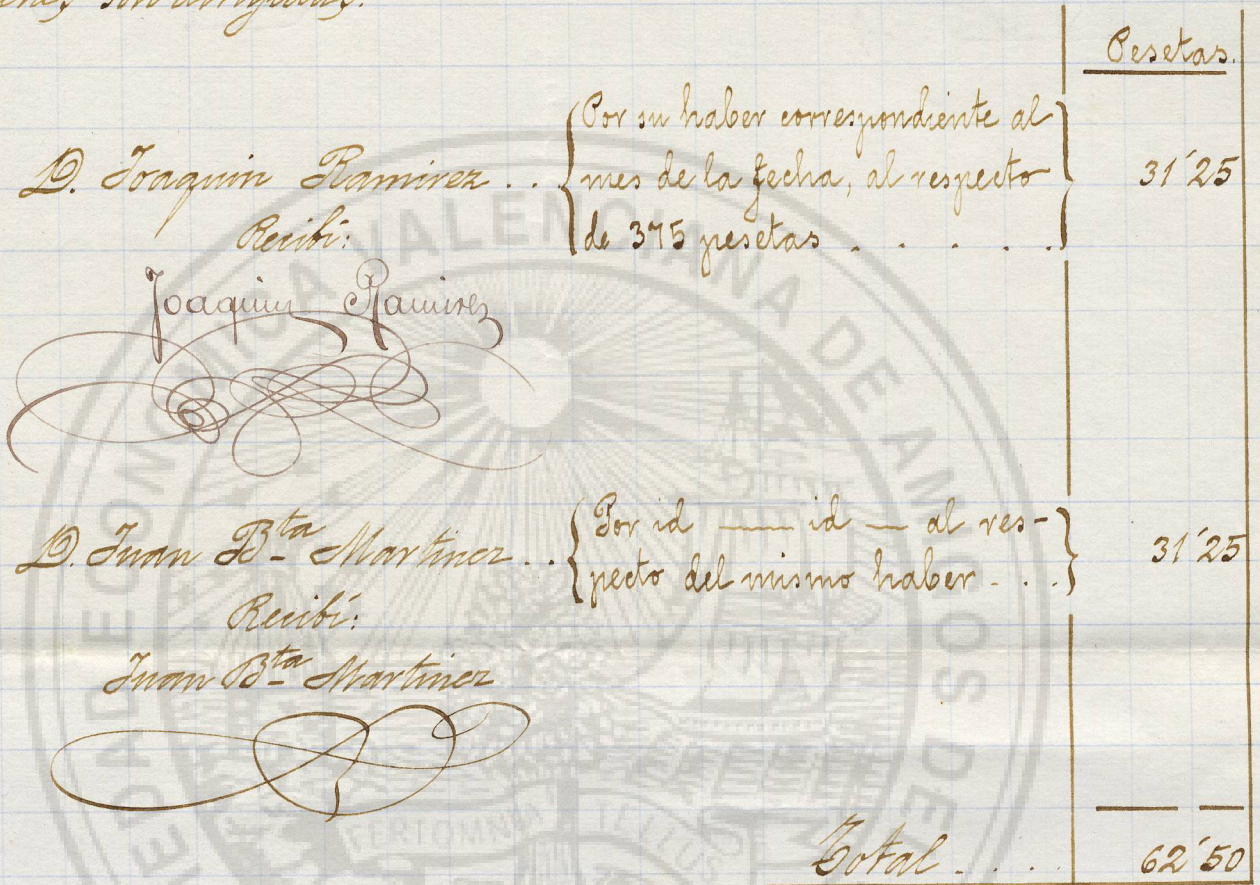 son obligadas.
Pesetas.
D. Joaquin Ramirez ... Por su haber correspondiente al
mes de la fecha, al respecto 31'25
de 375 pesetas . . . . .
Recibí:
Joaquin Ramirez
D. Juan Bta Martinez ... Por id —— id — al res-
pecto del mismo haber - . . 31'25
Recibí:
Juan Bta Martinez
Total . . . 62'50
ECONOMICA VALENCIANA DE AMIGOS DEL
FERT OMNIA TELLUS